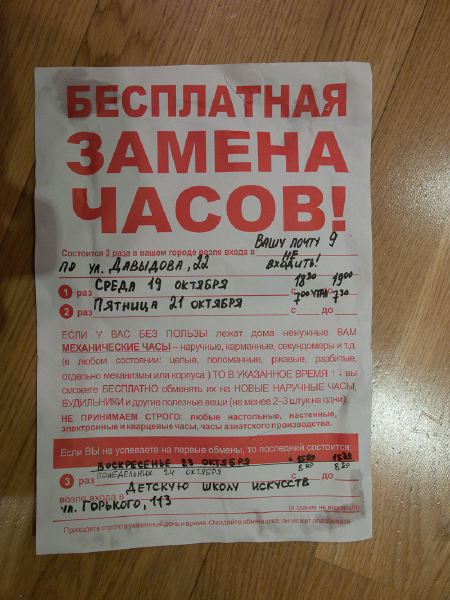 БЕСПЛАТНАЯ
ЗАМЕНА
ЧАСОВ!
Состоится 3 раза в вашем городе возле входа в ВАШУ ПОЧТУ 9
ПО УЛ. ДАВЫДОВА, 22 НЕ ВХОДИТЬ!
1 раз СРЕДА 19 ОКТЯБРЯ с 18 30 до 19 00
2 раз ПЯТНИЦА 21 ОКТЯБРЯ с 7 00 УТРА до 7 30
ЕСЛИ У ВАС БЕЗ ПОЛЬЗЫ лежат дома ненужные ВАМ
МЕХАНИЧЕСКИЕ ЧАСЫ – наручные, карманные, секундомеры и т.д.
(в любом состоянии: целые, поломанные, ржавые, разбитые,
отдельно механизмы или корпуса) ТО В УКАЗАННОЕ ВРЕМЯ ↑↓ вы
сможете БЕСПЛАТНО обменять их на НОВЫЕ НАРУЧНЫЕ ЧАСЫ,
БУДИЛЬНИКИ и другие полезные вещи (не менее 2–3 штук на одни).
НЕ ПРИНИМАЕМ СТРОГО: любые настольные, настенные,
электронные и кварцевые часы, часы азиатского производства.
Если ВЫ не успеваете на первые обмены, то последний состоится:
ВОСКРЕСЕНЬЕ 23 ОКТЯБРЯ
3 раз ПОНЕДЕЛЬНИК 24 ОКТЯБРЯ с 8 00 до 8 20
возле входа в ДЕТСКУЮ ШКОЛУ ИСКУССТВ
УЛ. ГОРЬКОГО, 113 (в здание не входить!!!)
Приходите строго в указанный день и время. Ожидайте обменщика, он может опаздывать